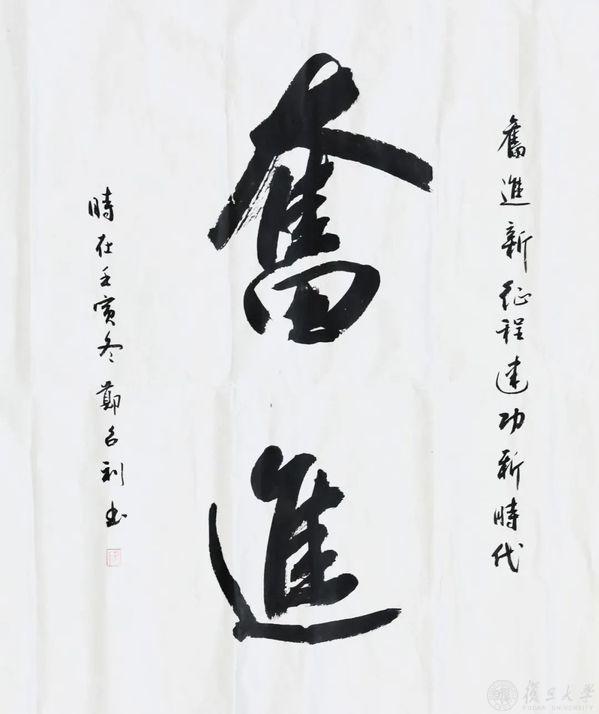 奮進新征程建功新時代
奮進
時在壬寅冬鄭召利書
復旦大學
FUDAN UNIVERSITY